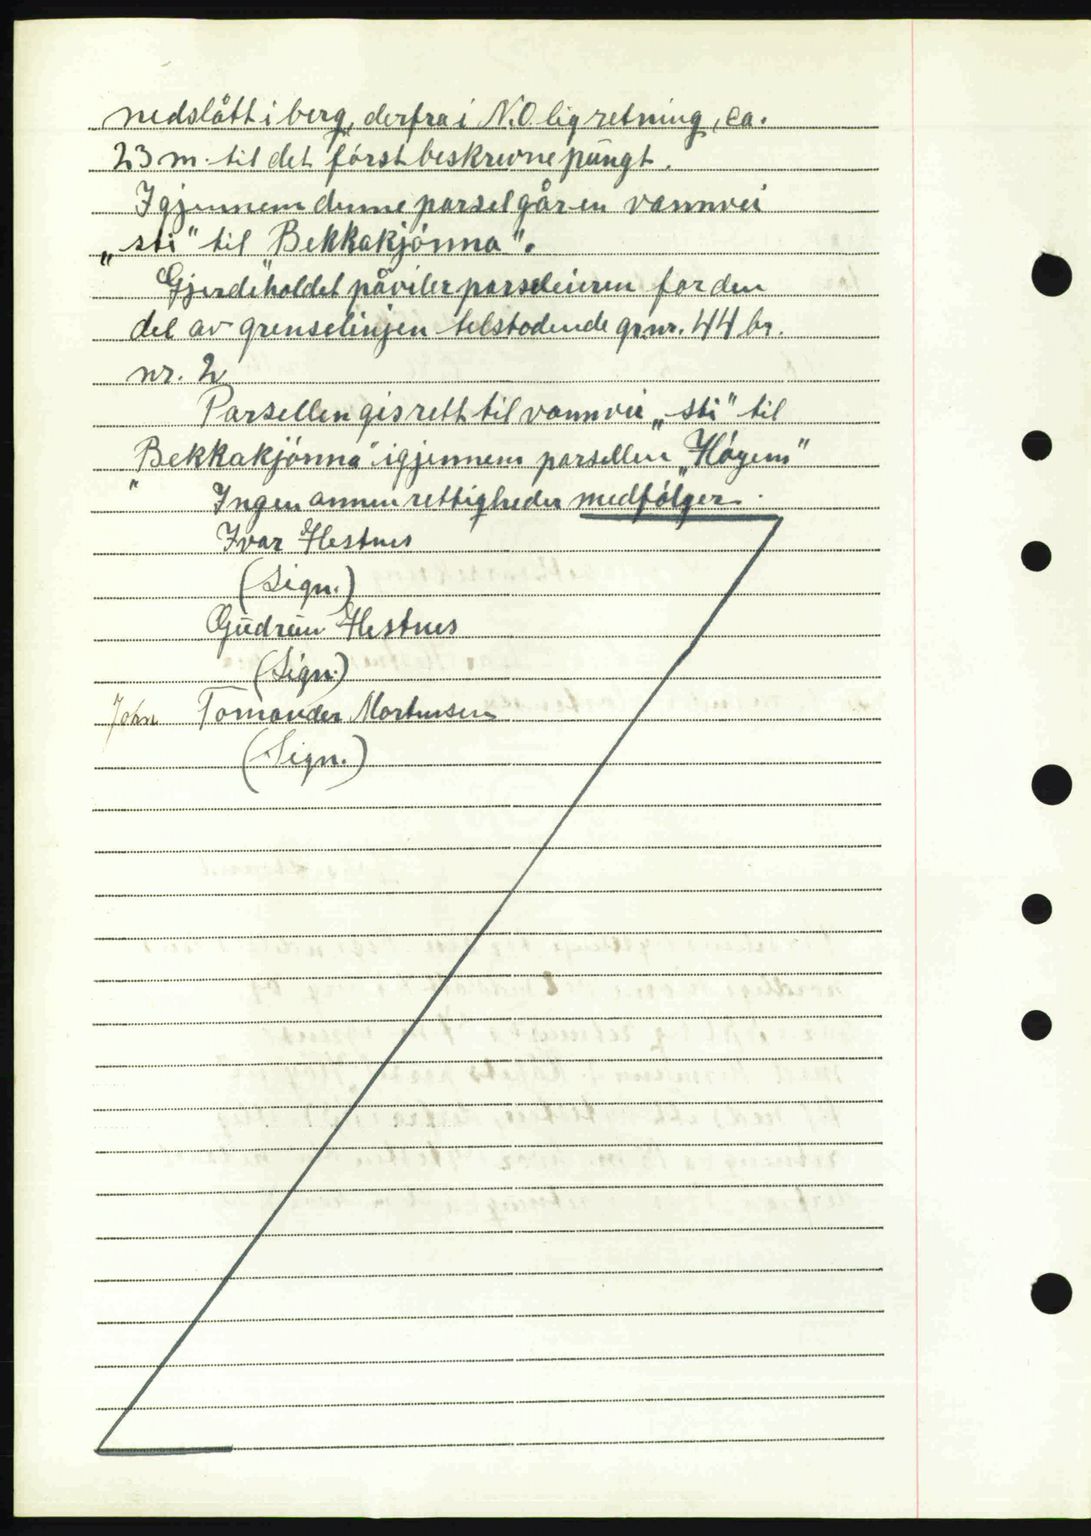 nedslått i berg, derfra i N.O.lig retning, ca.
23 m. til det først beskrevne pungt.
Igjennem denne parsel går en vannvei
„sti" til „Bekkakjønna".
Gjerdeholdet påviler parseleieren for den
del av grenselinjen tilstodende gr.nr. 44 br.
nr. 2
Parsellen gis rett til vannvei „sti" til
„Bekkakjønna" igjennem parsellen „Høgem"
Ingen annen rettigheder medfølger.
Ivar Hestnes
(Sign.)
Gudrun Hestnes
(Sign.)
John Tomander Mortensen
(Sign.)